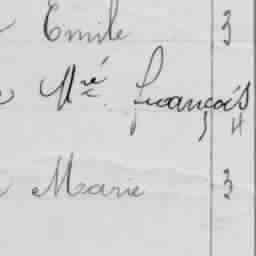 Emile 3
Mré François 4
Marie 3